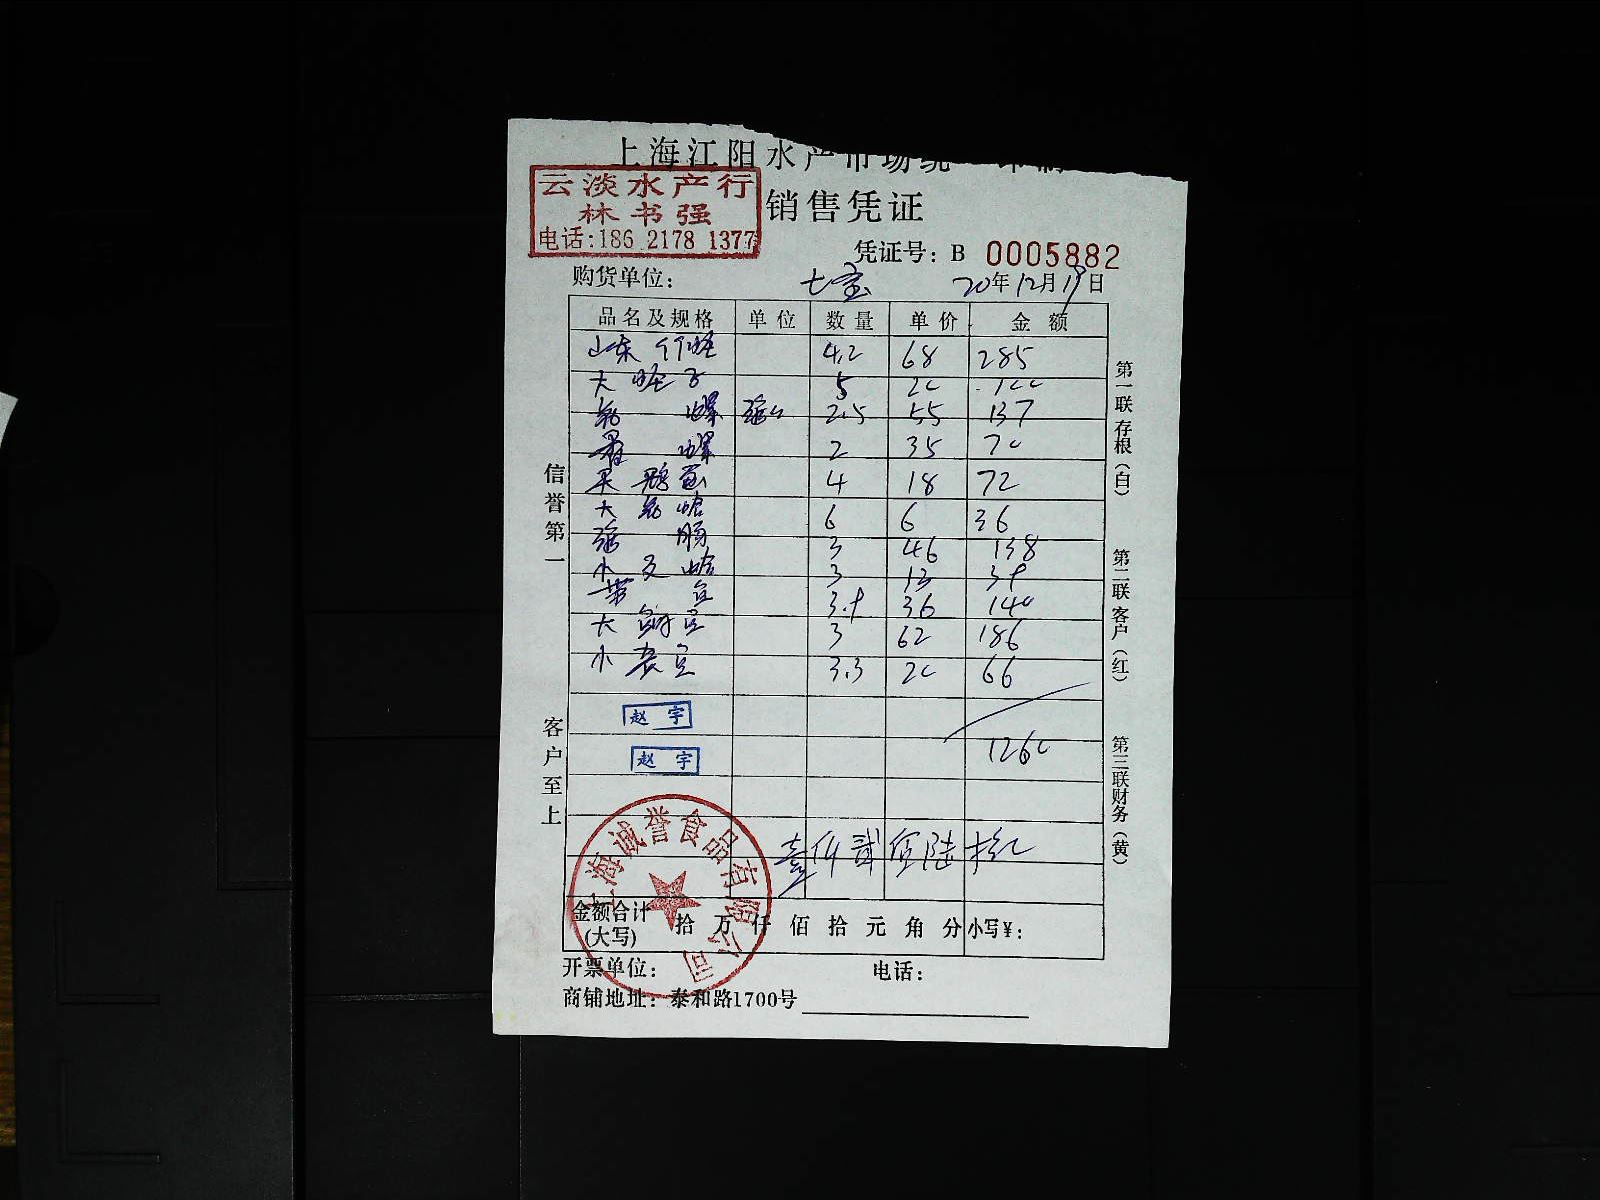 上海江阳水产市场统一印制
云淡水产行
林书强
电话:186 2178 1377
销售凭证
凭证号: B 0005882
购货单位: 七宝 20年12月19日
品名及规格 单位 数量 单价 金额
山东竹蛏 4.2 68 285
大蛏子 5 20 100
螺 2.5 55 137
螺 2 35 70
4 18 72
大 蛤 6 6 36
肠 3 46 138
小 蛤 3 13 39
3.9 36 140
大 3 62 186
小 3.3 20 66
赵宇
1260
赵宇
壹仟贰佰陆拾元
金额合计(大写) 拾 万 仟 佰 拾 元 角 分 小写¥:
开票单位: 电话:
商铺地址: 泰和路1700号
上海诚誉食品有限公司
信誉第一
客户至上
第一联存根(白)
第二联客户(红)
第三联财务(黄)